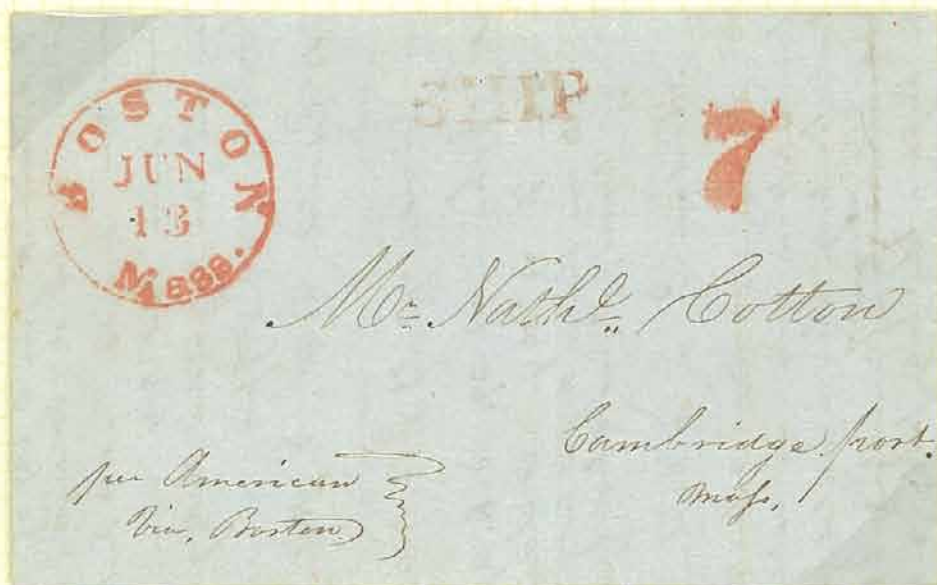 BOSTON
JUN
13
Mass.
SHIP
7
Mr. Nathl. Cotton
Cambridge port.
Mass,
per American
Via, Boston